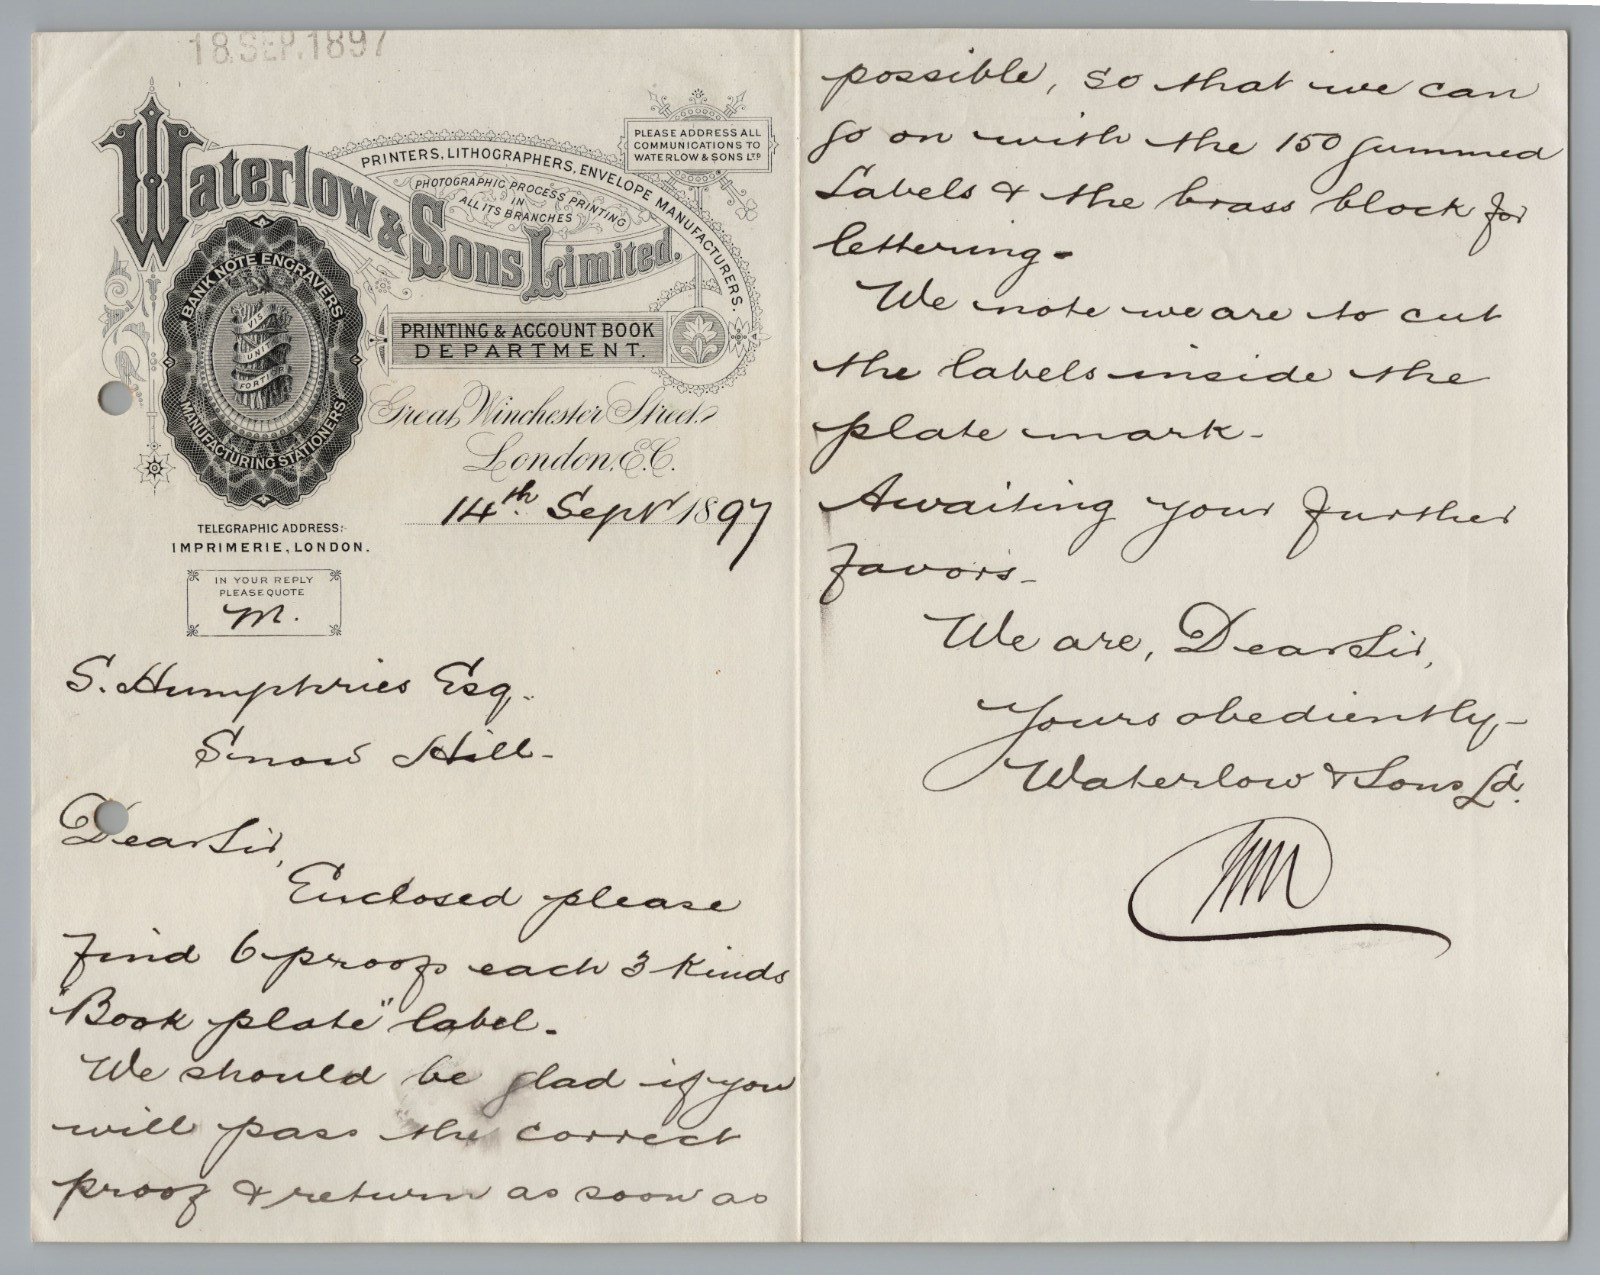 18.SEP.1897
Waterlow & Sons Limited.
PRINTERS, LITHOGRAPHERS, ENVELOPE MANUFACTURERS.
PHOTOGRAPHIC PROCESS PRINTING
IN
ALL ITS BRANCHES
PLEASE ADDRESS ALL
COMMUNICATIONS TO
WATERLOW & SONS LTD
BANK NOTE ENGRAVERS
VIS
UNITA
FORTIOR
MANUFACTURING STATIONERS
PRINTING & ACCOUNT BOOK
DEPARTMENT.
Great Winchester Street,
London, E.C.
14th Septr 1897
TELEGRAPHIC ADDRESS:-
IMPRIMERIE, LONDON.
IN YOUR REPLY
PLEASE QUOTE
M.
S. Humphries Esq.
Snow Hill-
Dear Sir,
Enclosed please
find 6 proofs each 3 kinds
"Book plate" label.
We should be glad if you
will pass the correct
proof & return as soon as
possible, so that we can
go on with the 150 gummed
Labels & the brass block for
lettering-
We note we are to cut
the labels inside the
plate mark-
Awaiting your further
favors-
We are, Dear Sir,
Yours obediently-
Waterlow & Sons Ld.